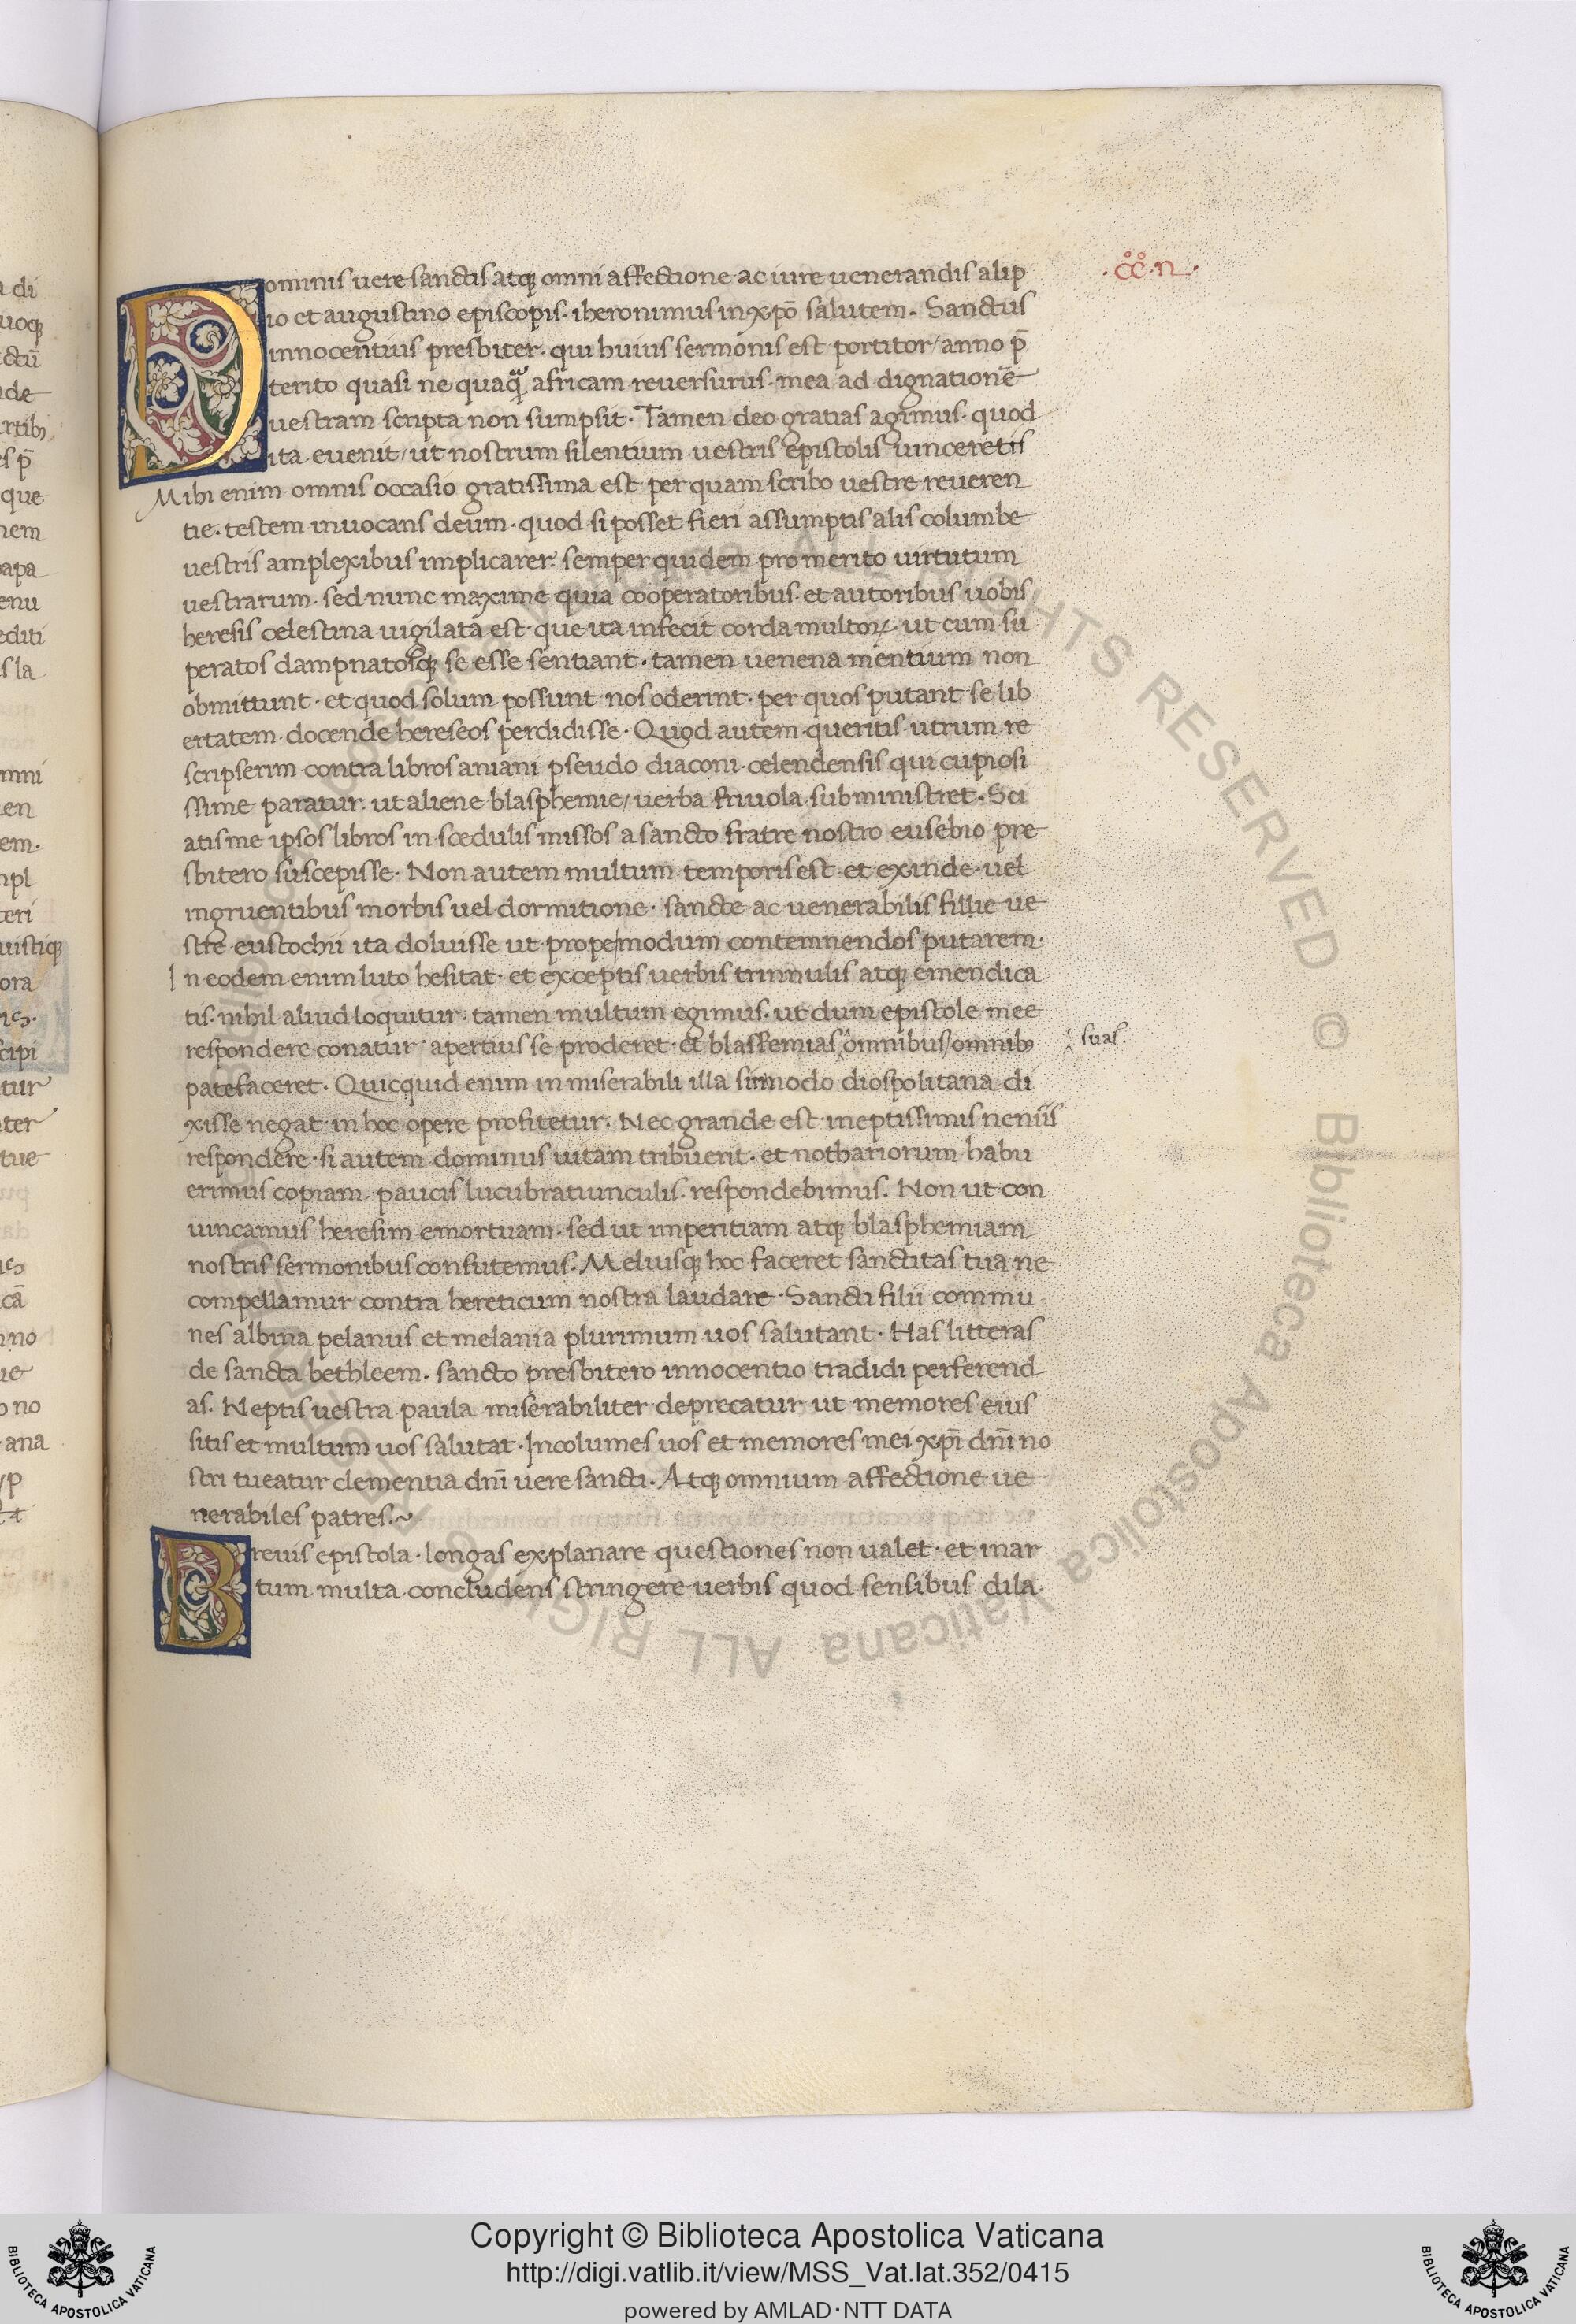 .cc.n.
Dominis uere sanctis atq; omni affectione ac iure uenerandis alip
io et augustino episcopis. iheronimus in xpō salutem. Sanctus
innocentius presbiter. qui huius sermonis est portitor/ anno p̄
terito quasi ne quaquā africam reuersurus. mea ad dignationē
uestram scripta non sumpsit. Tamen deo gratias agimus. quod
ita euenit/ ut nostrum silentium uestris epistolis uinceretis
Mihi enim omnis occasio gratissima est per quam scribo uestre reueren
tie. testem inuocans deum. quod si posset fieri assumptis alis columbe
uestris amplexibus implicarer. semper quidem pro merito uirtutum
uestrarum. sed nunc maxime quia cooperatoribus. et autoribus uobis
heresis celestina uigilata est. que ita infecit corda multoꝝ. ut cum su
peratos dampnatosq; se esse sentiant. tamen uenena mentium non
obmittunt. et quod solum possunt nos oderint. per quos putant se lib
ertatem docende hereseos perdidisse. Quod autem queritis utrum re
scripserim contra libros aniani pseudo diaconi celendensis qui cupiosi
ssime paratur. ut aliene blasphemie/ uerba friuola subministret. Sci
atis me ipsos libros in scedulis missos a sancto fratre nostro eusebio pre
sbitero suscepisse. Non autem multum temporis est. et exinde. uel
ingruentibus morbis uel dormitione. sancte ac uenerabilis fillie ue
stre eustochii ita doluisse ut prope modum contemnendos putarem.
In eodem enim luto hesitat. et exceptis uerbis trinnulis atq; emendica
tis. nihil aliud loquitur. tamen multum egimus. ut dum epistole mee
respondere conatur. apertius se proderet. et blasfemias omnibus omnib;
suas.
patefaceret. Quicquid enim in miserabili illa sinnodo diospolitana di
xisse negat. in hoc opere profitetur. Nec grande est ineptissimis neniis
respondere. si autem dominus uitam tribuerit. et nothariorum habu
erimus copiam. paucis lucubratiunculis. respondebimus. Non ut con
uincamus heresim emortuam. sed ut imperitiam atq; blasphemiam
nostris sermonibus confutemus. Meliusq; hoc faceret sanctitas tua ne
compellamur contra hereticum nostra laudare. Sancti filii commu
nes albina pelanus et melania plurimum uos salutant. Has litteras
de sancta bethleem. sancto presbitero innocentio tradidi perferend
as. Neptis uestra paula miserabiliter deprecatur ut memores eius
sitis et multum uos salutat. Incolumes uos et memores mei xpī dnī no
stri tueatur clementia dnī uere sancti. Atq; omnium affectione ue
nerabiles patres.~
Breuis epistola. longas explanare questiones non ualet. et inar
tum multa concludens stringere uerbis quod sensibus dila.
Copyright © Biblioteca Apostolica Vaticana
http://digi.vatlib.it/view/MSS_Vat.lat.352/0415
powered by AMLAD·NTT DATA
BIBLIOTECA APOSTOLICA VATICANA
BIBLIOTECA APOSTOLICA VATICANA